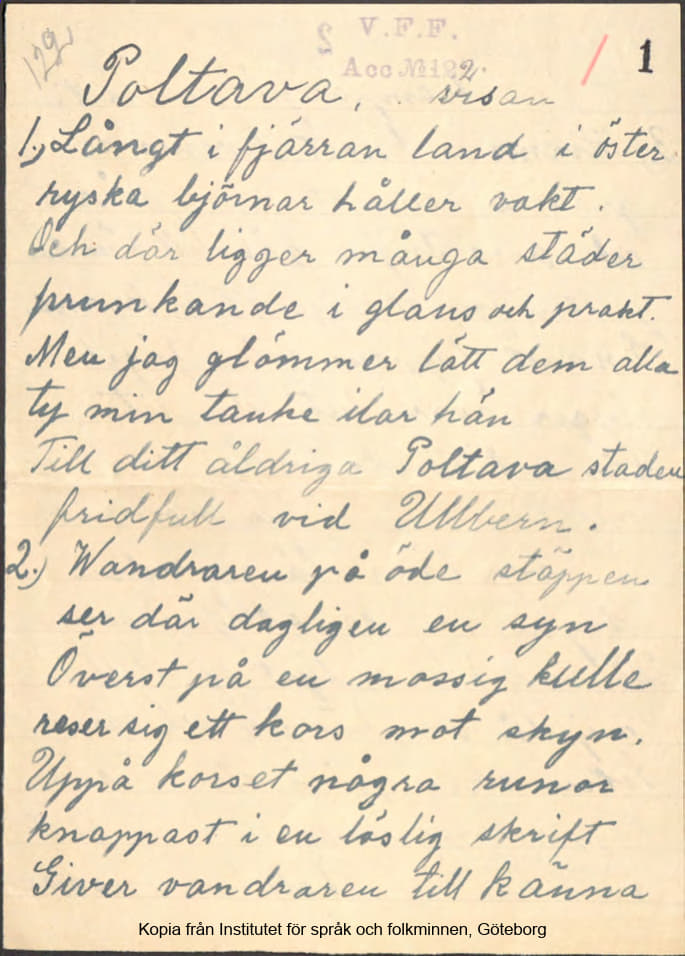 122
V.F.F.
2
Acc № 122
1
Poltava, visan
1.) Långt i fjärran land i öster
ryska björnar håller vakt.
Och där ligger många städer
prunkande i glans och prakt.
Men jag glömmer lätt dem alla
ty min tanke ilar hän
Till ditt åldriga Poltava staden
fridfull vid Ullbern.
2.) Wandraren på öde stäppen
ser där dagligen en syn
Överst på en mossig kulle
reser sig ett kors mot skyn.
Uppå korset några runor
knappast i en löslig skrift
Giver vandraren till känna
Kopia från Institutet för språk och folkminnen, Göteborg